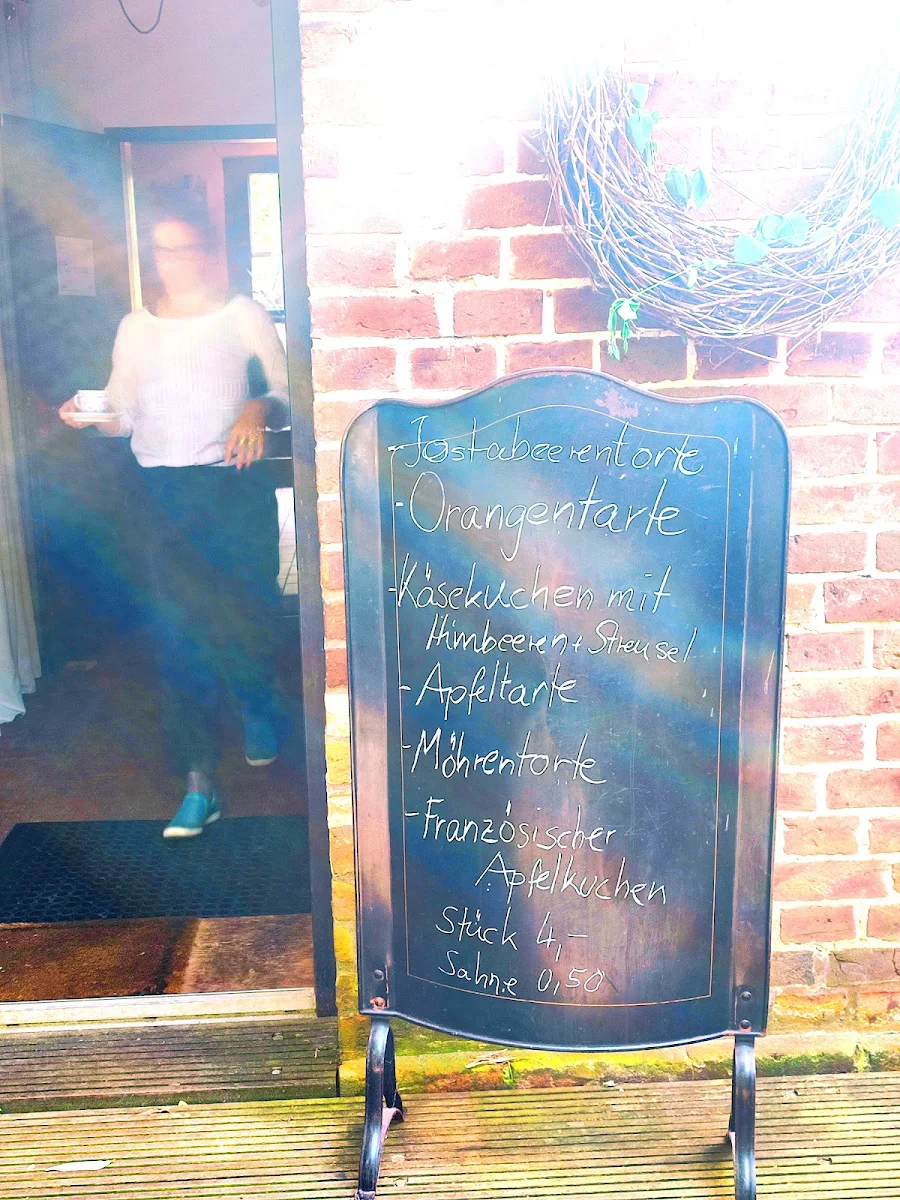 - Jostabeerentorte
- Orangentarte
- Käsekuchen mit
Himbeeren + Streusel
- Apfeltarte
- Möhrentorte
- Französischer
Apfelkuchen
Stück 4,-
Sahne 0,50